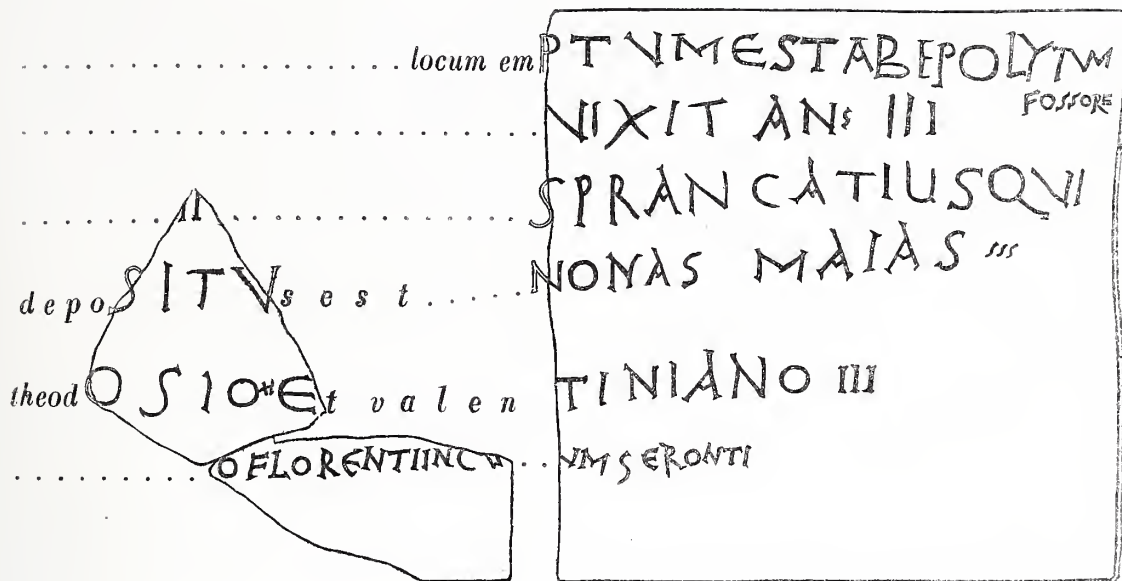 locum emPTVMESTABEPOLYTVM
FOSSORE
VIXIT ANS III
II SPRANCATIUSQVI
depoSITVs est NONAS MAIAS sss
theodOSIO Et valen TINIANO III
OFLORENTIINC VMSERONTI